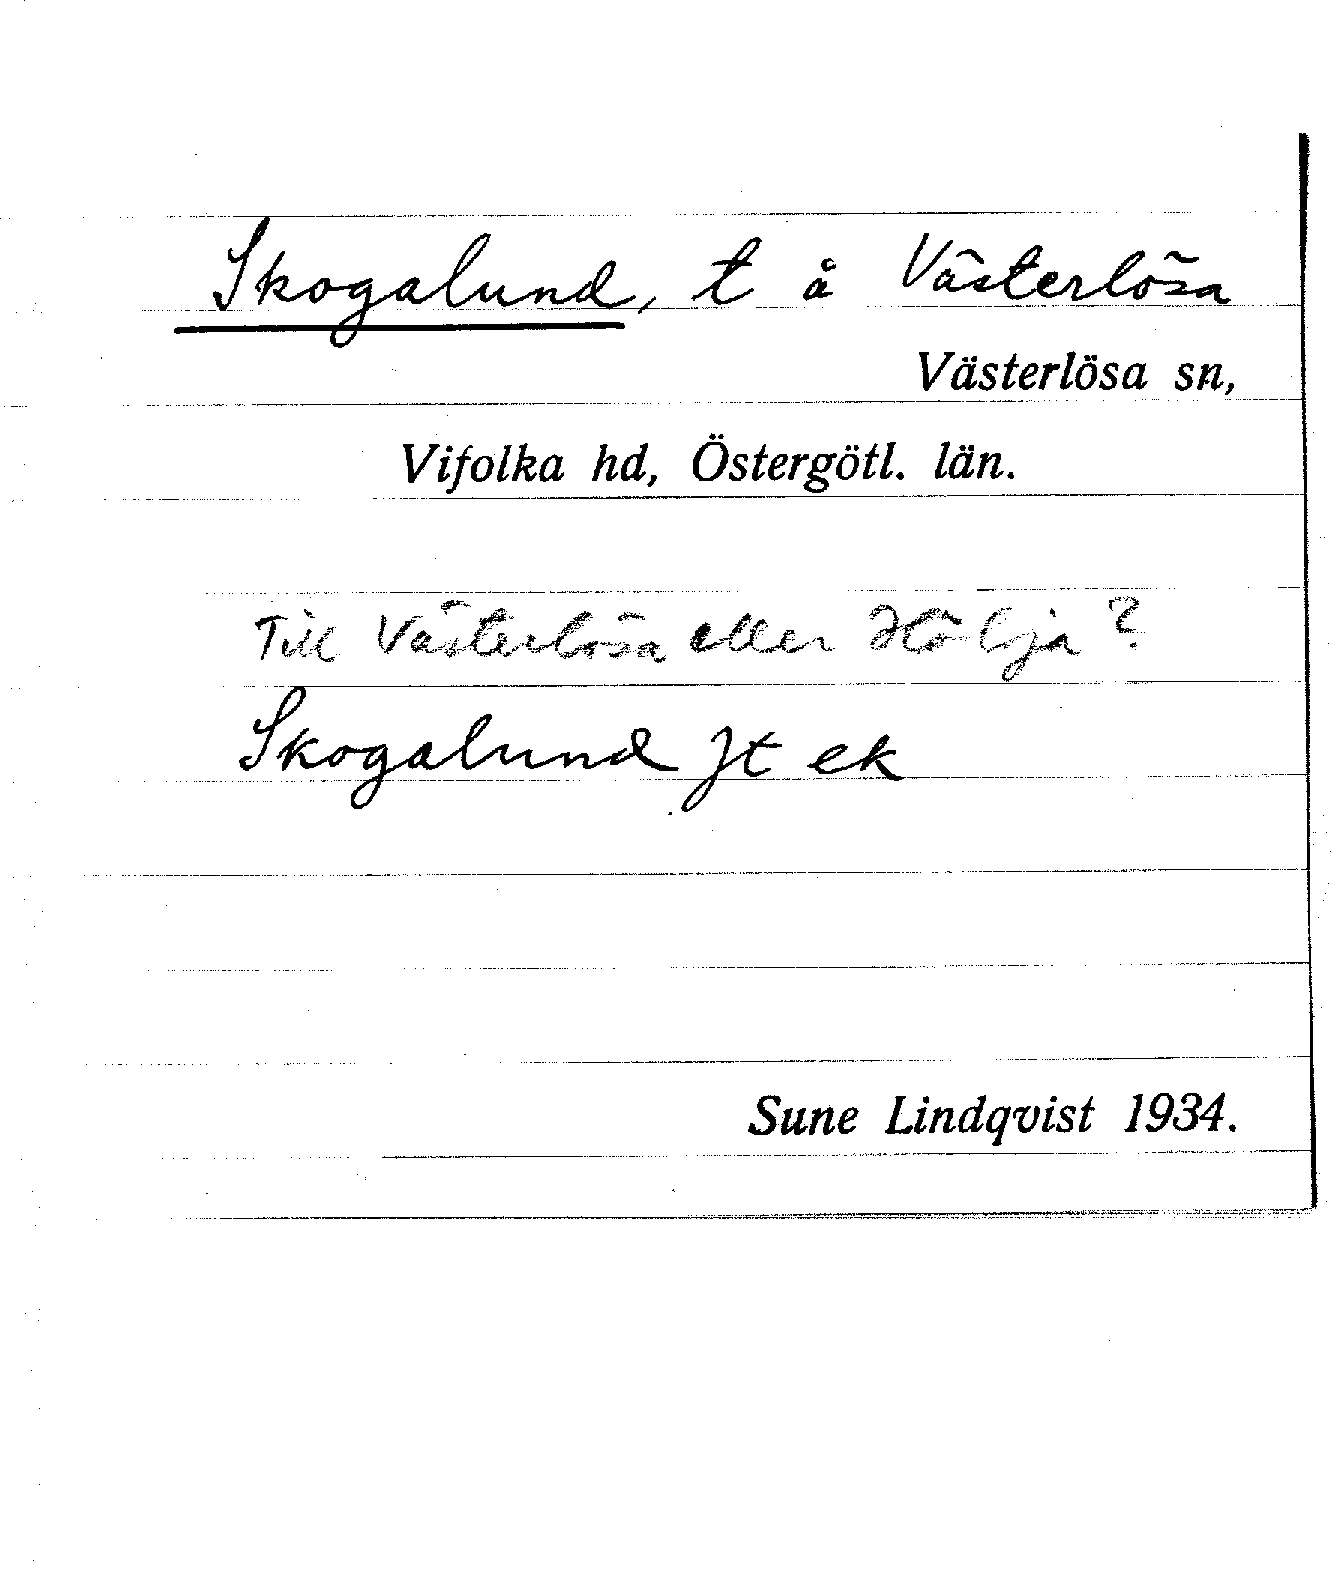 Skogalund, t å Västerlösa
Västerlösa sn,
Vifolka hd, Östergötl. län.
Till Västerlösa eller Hölja?
Skogalund Jt ek
Sune Lindqvist 1934.